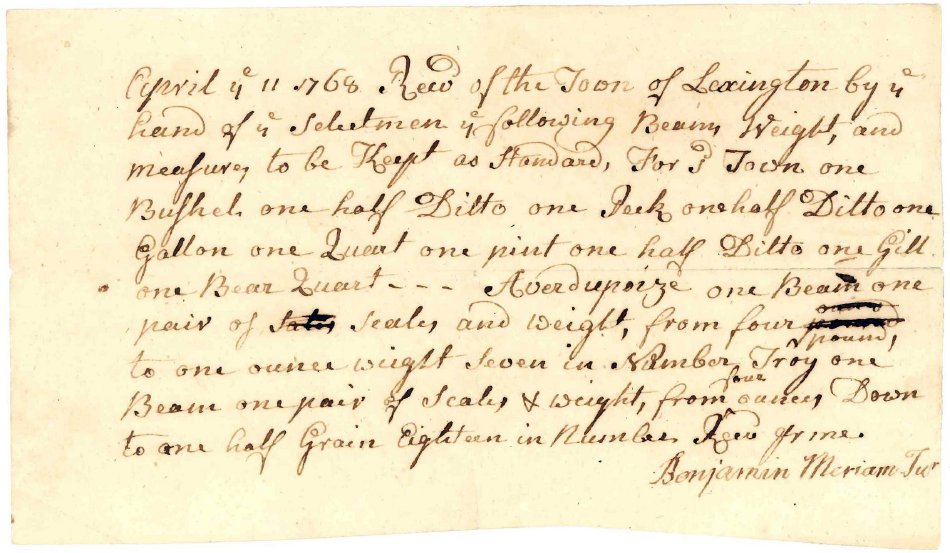 April ye 11 1768 Recd of the Town of Lexington by ye
hand of ye Selectmen ye following Beams Weights, and
measures, to be Kept as Standards, For ye Town one
Bushel one half Ditto one Peck one half Ditto one
Gallon one Quart one pint one half Ditto one Gill
one Bear Quart - - - Averdupoize one Beam one
pair of Scales and weights, from four
pounds,
to one ounce wieght Seven in Number Troy one
four
Beam one pair of Scales & weights, from ounces Down
to one half Grain Eighteen in Number Recd pr me
Benjamin Meriam Tur